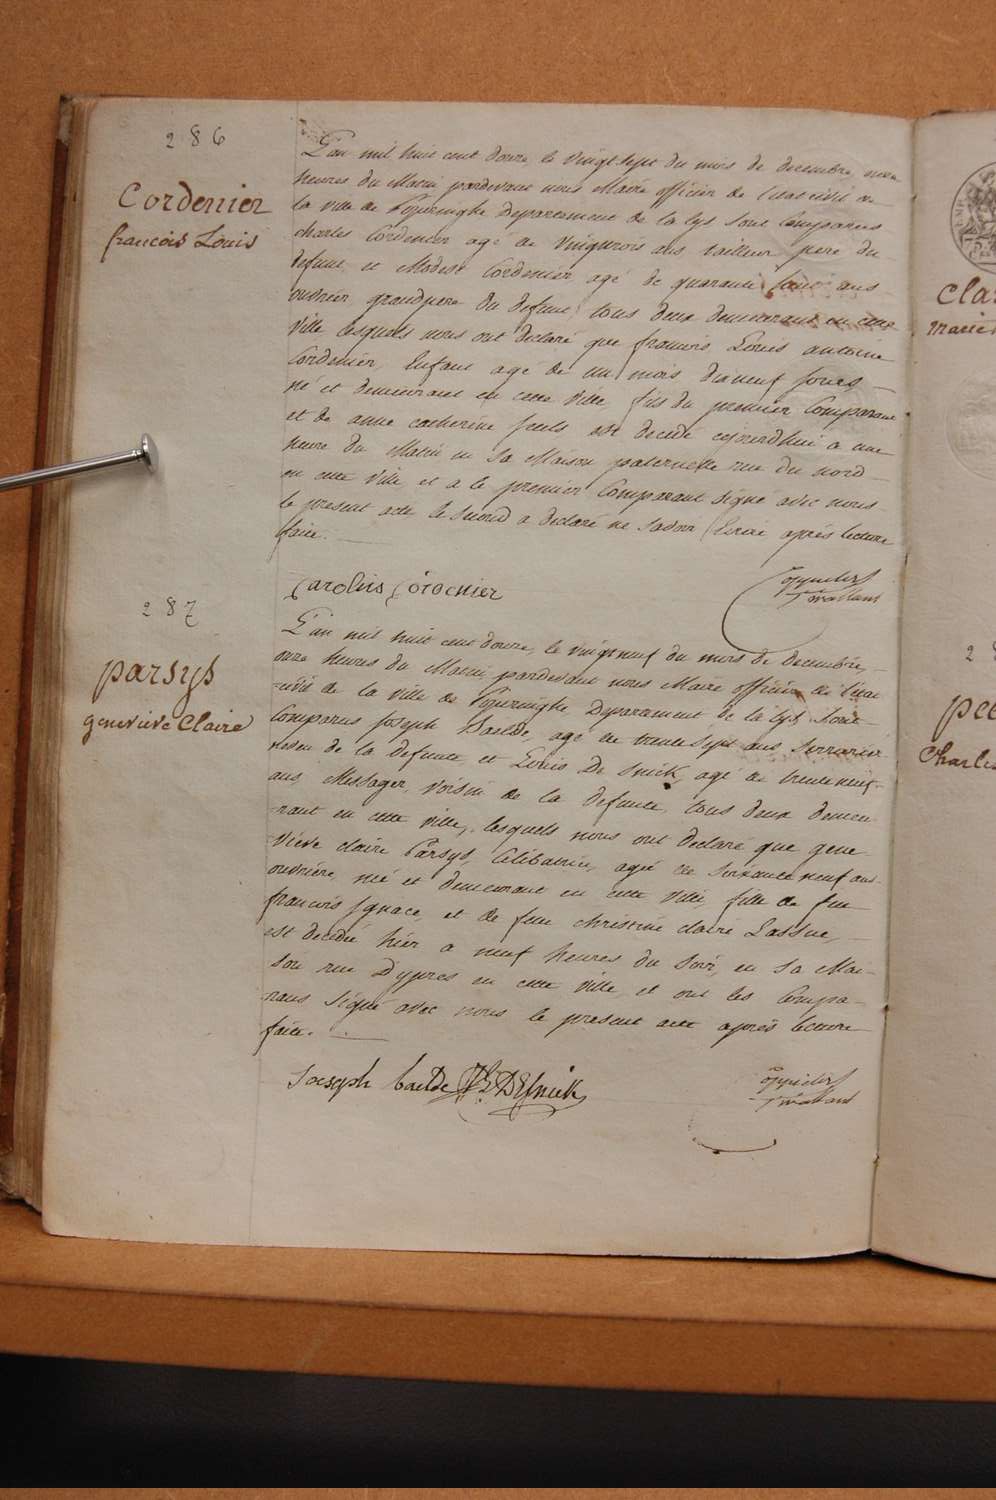 286
Cordenier
francois Louis
L'an mil huit cent douze le vingt sept du mois de decembre, onze
heures du Matin pardevant nous Maire officier de l'etat civil de
la ville de Poperinghe Departement de la Lys sont Comparus
charles Cordenier agé de vingtrois ans tailleur pere du
defunt, et Modeste Cordenier, agé de quarante ans
ouvrier, grandpere du defunt, tous deux demeurant en cette
ville lesquels nous ont declaré que francois Louis antoine
Cordenier, Enfant agé de un mois dixneuf jours,
né et demeurant en cette ville, fils du premier Comparant
et de anne catherine feuls est decedé cejourdhui a une
heure du Matin en sa Maison paternelle rue du nord
en cette ville et a le premier Comparant signé avec nous
le present acte le second a declaré ne savoir Ecrire après lecture
faite.
Carolus Cordenier
287
parsys
geneviève Claire
L'an mil huit cent douze, le vingtneuf du mois de decembre,
onze heures du Matin, pardevant nous Maire officier de l'etat
civil de la ville de Poperinghe Departement de la Lys sont
Comparus Joseph Baelde, agé de trente sept ans Serrurier
neveu de la defunte, et Louis De Snick, agé de trente neuf
ans Messager, voisin de la defunte, tous deux demeu
rant en cette ville, lesquels nous ont declaré que gene
viève claire Parsys, Célibataire, agée de soixante neuf ans
ouvrière, née et demeurant en cette ville, fille de feu
francois Ignace, et de feue christine claire Lassue,
est decedée hier a neuf heures du soir, en sa Mai-
son rue D'ypres en cette ville, et ont les Compa-
rans signé avec nous le present acte après lecture
faite.
Joseph baelde L DeSnick
Cla
marie
2
pee
Charles